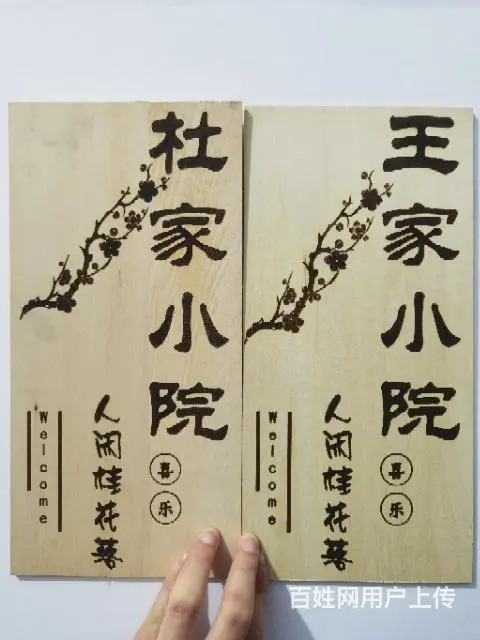 杜家小院
喜乐
人闲桂花落
Welcome
王家小院
喜乐
人闲桂花落
Welcome
百姓网用户上传